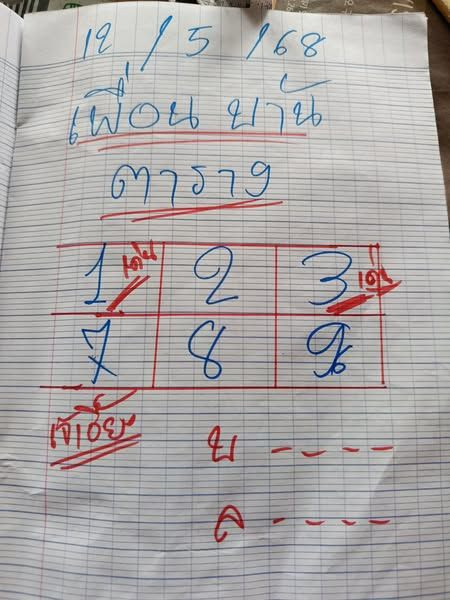 12 / 5 / 68
เพื่อน บ้าน
ตาราง
1 เด่น 2 3 เด่น
7 8 9
เจ๊เอี๊ยะ
บ - - - -
ล - - - -